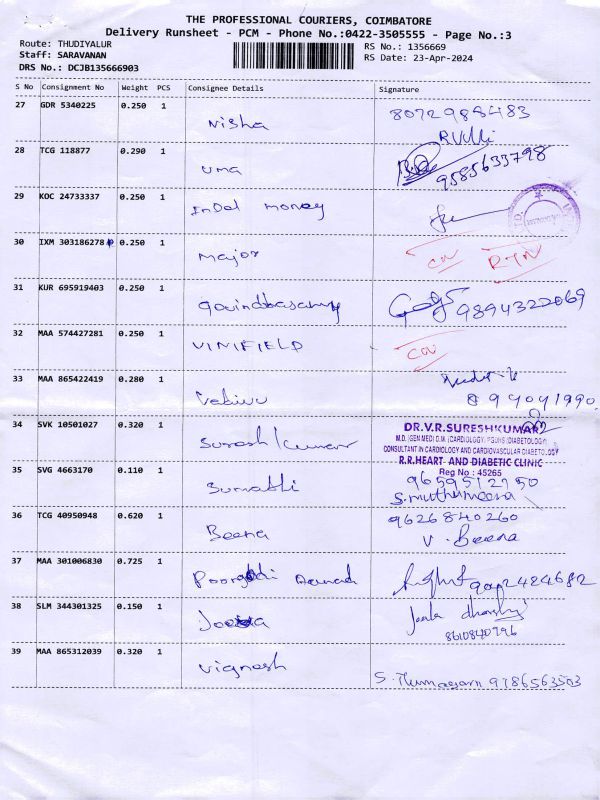 THE PROFESSIONAL COURIERS, COIMBATORE
Delivery Runsheet - PCM - Phone No.:0422-3505555 - Page No.:3
Route: THUDIYALUR
Staff: SARAVANAN
DRS No.: DCJB135666903
RS No.: 1356669
RS Date: 23-Apr-2024
S No Consignment No Weight PCS Consignee Details Signature
27 GDR 5340225 0.250 1 Nisha 8072985483
28 TCG 118877 0.290 1 uma 9585633798
29 KOC 24733337 0.250 1 Indel money
30 IXM 303186278 0.250 1 major RTN
31 KUR 695919403 0.250 1 govindhasamy 9894322069
32 MAA 574427281 0.250 1 VINIFIELD
33 MAA 865422419 0.280 1
34 SVK 10501027 0.320 1 Suresh Kumar
DR.V.R.SURESHKUMAR
M.D.(GEN MED) D.M. (CARDIOLOGY) PGDHS (DIABETOLOGY)
CONSULTANT IN CARDIOLOGY AND CARDIOVASCULAR DIABETOLOGY
R.R.HEART AND DIABETIC CLINIC
Reg No : 45265
35 SVG 4663170 0.110 1 Sumathi 9659512750
S.muthumeena
36 TCG 40950948 0.620 1 Beena 9626840260
V. Beena
37 MAA 301006830 0.725 1
38 SLM 344301325 0.150 1
8610840796
39 MAA 865312039 0.320 1 Vignesh 9786563503